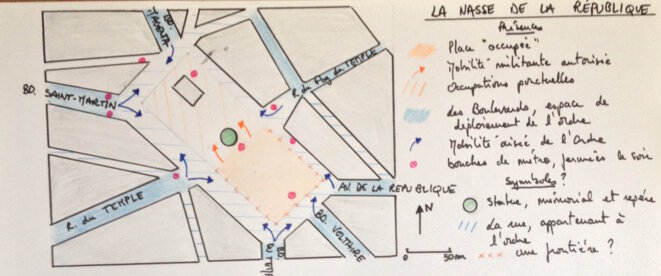 LA NASSE DE LA RÉPUBLIQUE
Présences
Place "occupée"
Mobilité militante autorisée
Occupations ponctuelles
Les Boulevards, espace de
déploiement de l'ordre
Mobilité aisée de l'Ordre
bouches de métro, fermées le soir
Symboles ?
Statue, mémorial et repère
La rue, appartenant à
l'ordre
une frontière ?
N
0 50m
BD.
MAGENTA
BD. SAINT-MARTIN
R. du Fbg du TEMPLE
AV. DE LA REPUBLIQUE
R. du TEMPLE
BD. VOLTAIRE
BD.